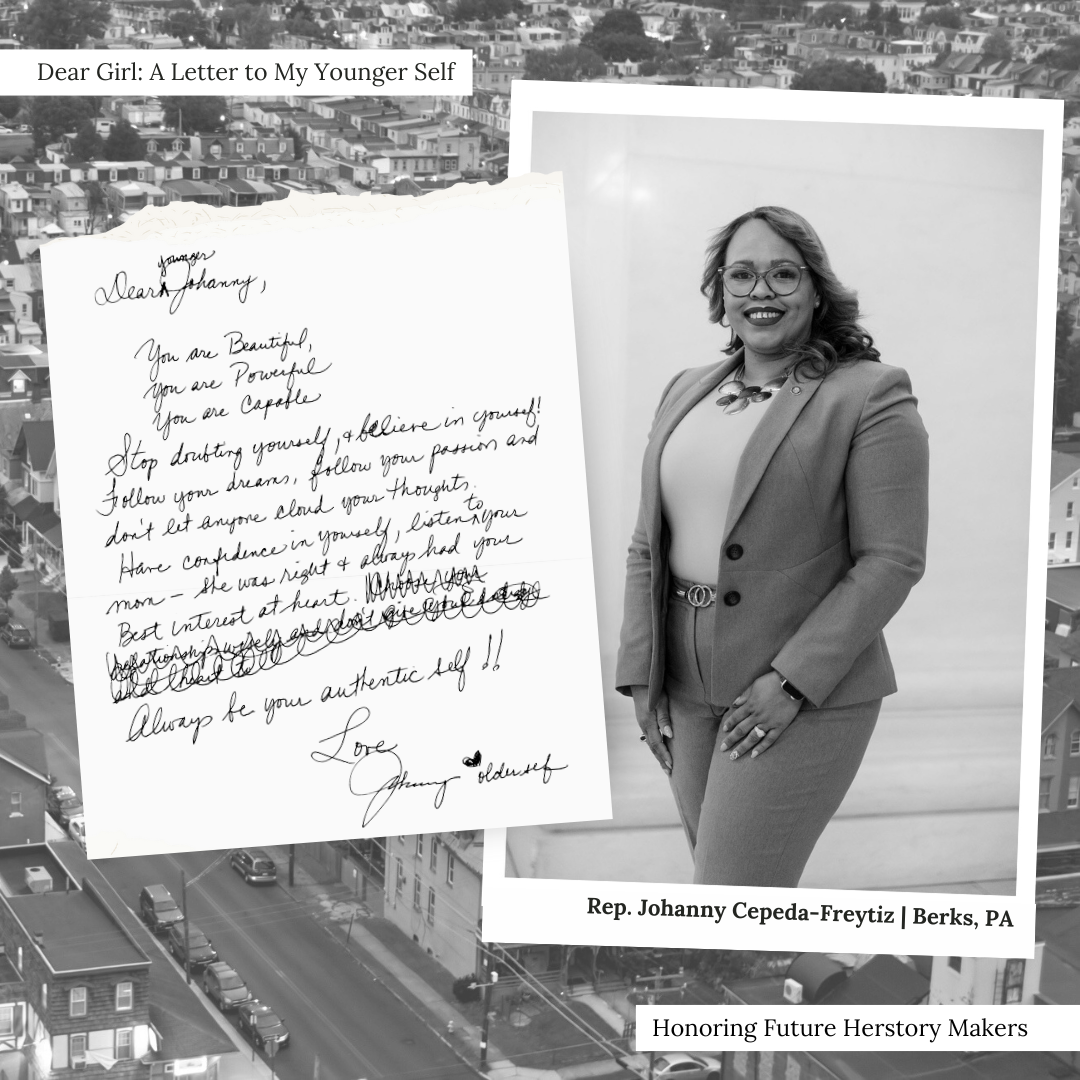 Dear Girl: A Letter to My Younger Self
younger
Dear Johanny,
You are Beautiful,
You are Powerful
You are Capable
Stop doubting yourself, & believe in yourself!
Follow your dreams, follow your passion and
don't let anyone cloud your thoughts.
Have confidence in yourself, listen to your
mom - she was right & always had your
Best interest at heart.
Always be your authentic self !!
Love
Johanny older self
Rep. Johanny Cepeda-Freytiz | Berks, PA
Honoring Future Herstory Makers